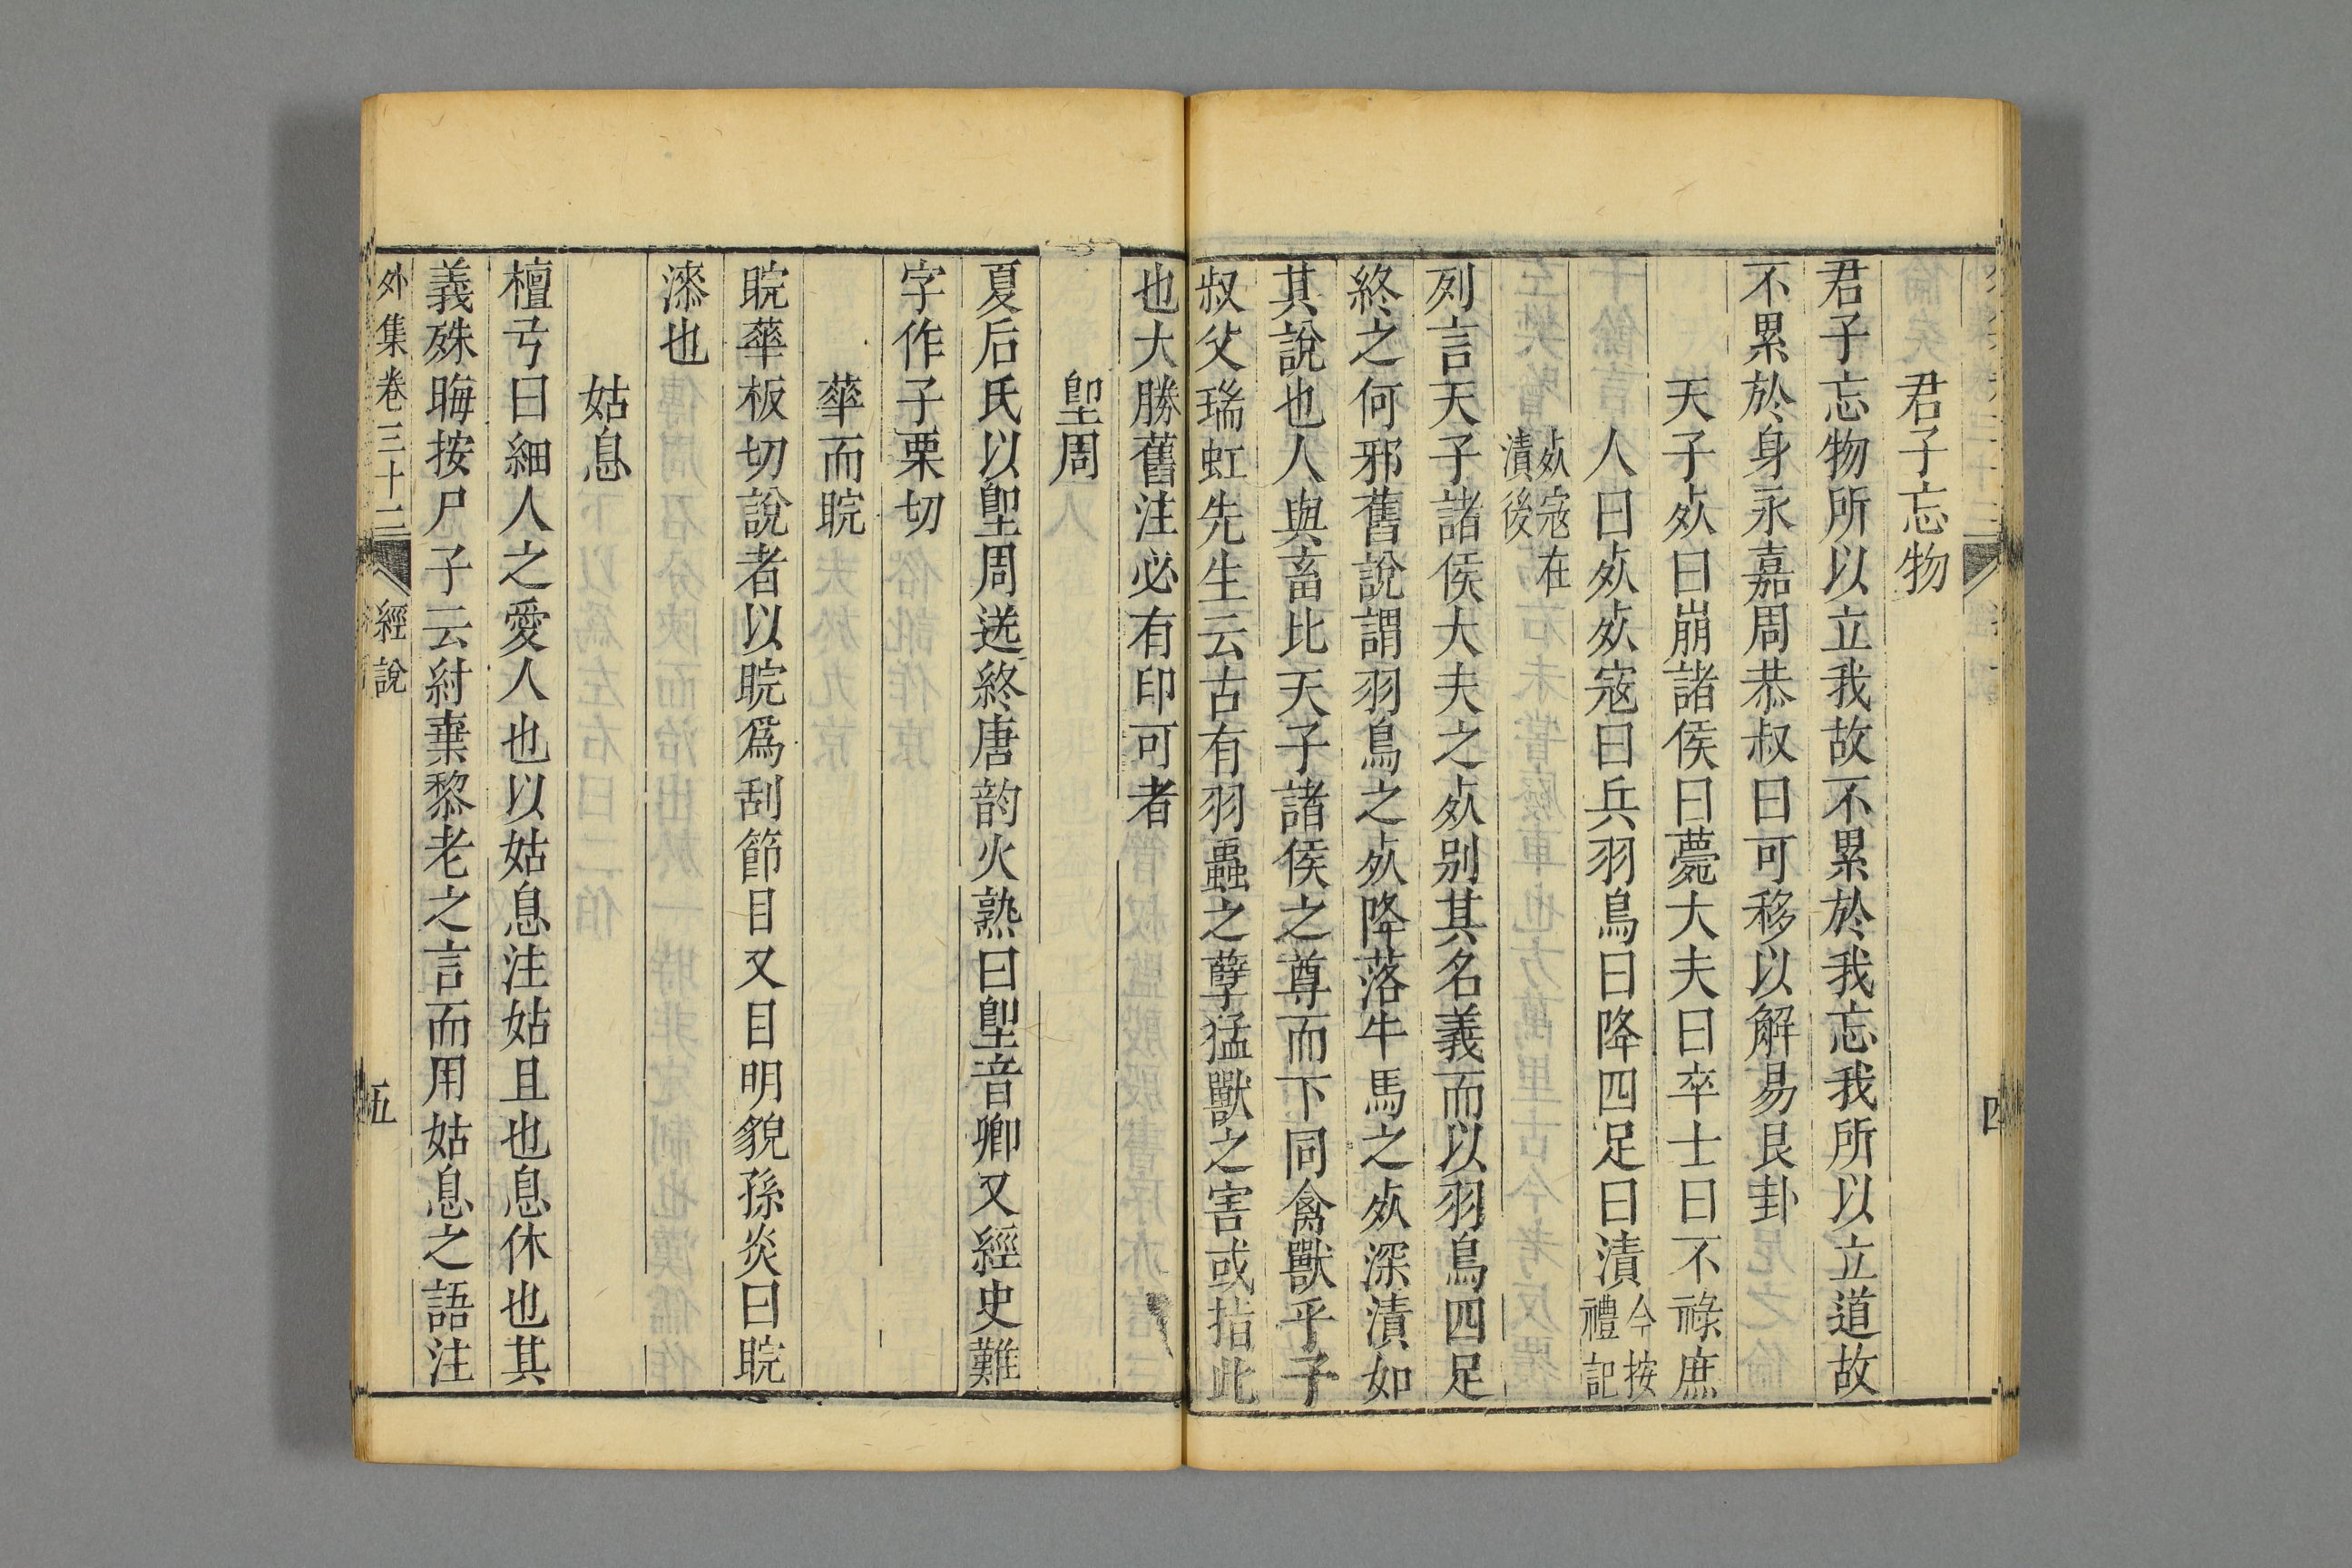 君子忘物
君子忘物所以立我故不累於我忘我所以立道故
不累於身永嘉周恭叔曰可移以解易艮卦
天子㱙曰崩諸侯曰薨大夫曰卒士曰不祿庶
人曰㱙㱙寇曰兵羽鳥曰降四足曰漬今按禮記
㱙寇在漬後
列言天子諸侯大夫之㱙别其名義而以羽鳥四足
終之何邪舊說謂羽鳥之㱙降落牛馬之㱙深漬如
其說也人與畜比天子諸侯之尊而下同禽獸乎子
叔父瑞虹先生云古有羽蟲之孽猛獸之害或指此
也大勝舊注必有印可者
堲周
夏后氏以堲周送終唐韵火熟曰堲音卿又經史難
字作子栗切
華而睆
睆華板切說者以睆爲刮節目又目明貌孫炎曰睆
漆也
姑息
檀弓曰細人之愛人也以姑息注姑且也息休也其
義殊晦按尸子云紂棄黎老之言而用姑息之語注
外集卷三十二 經說 五
四